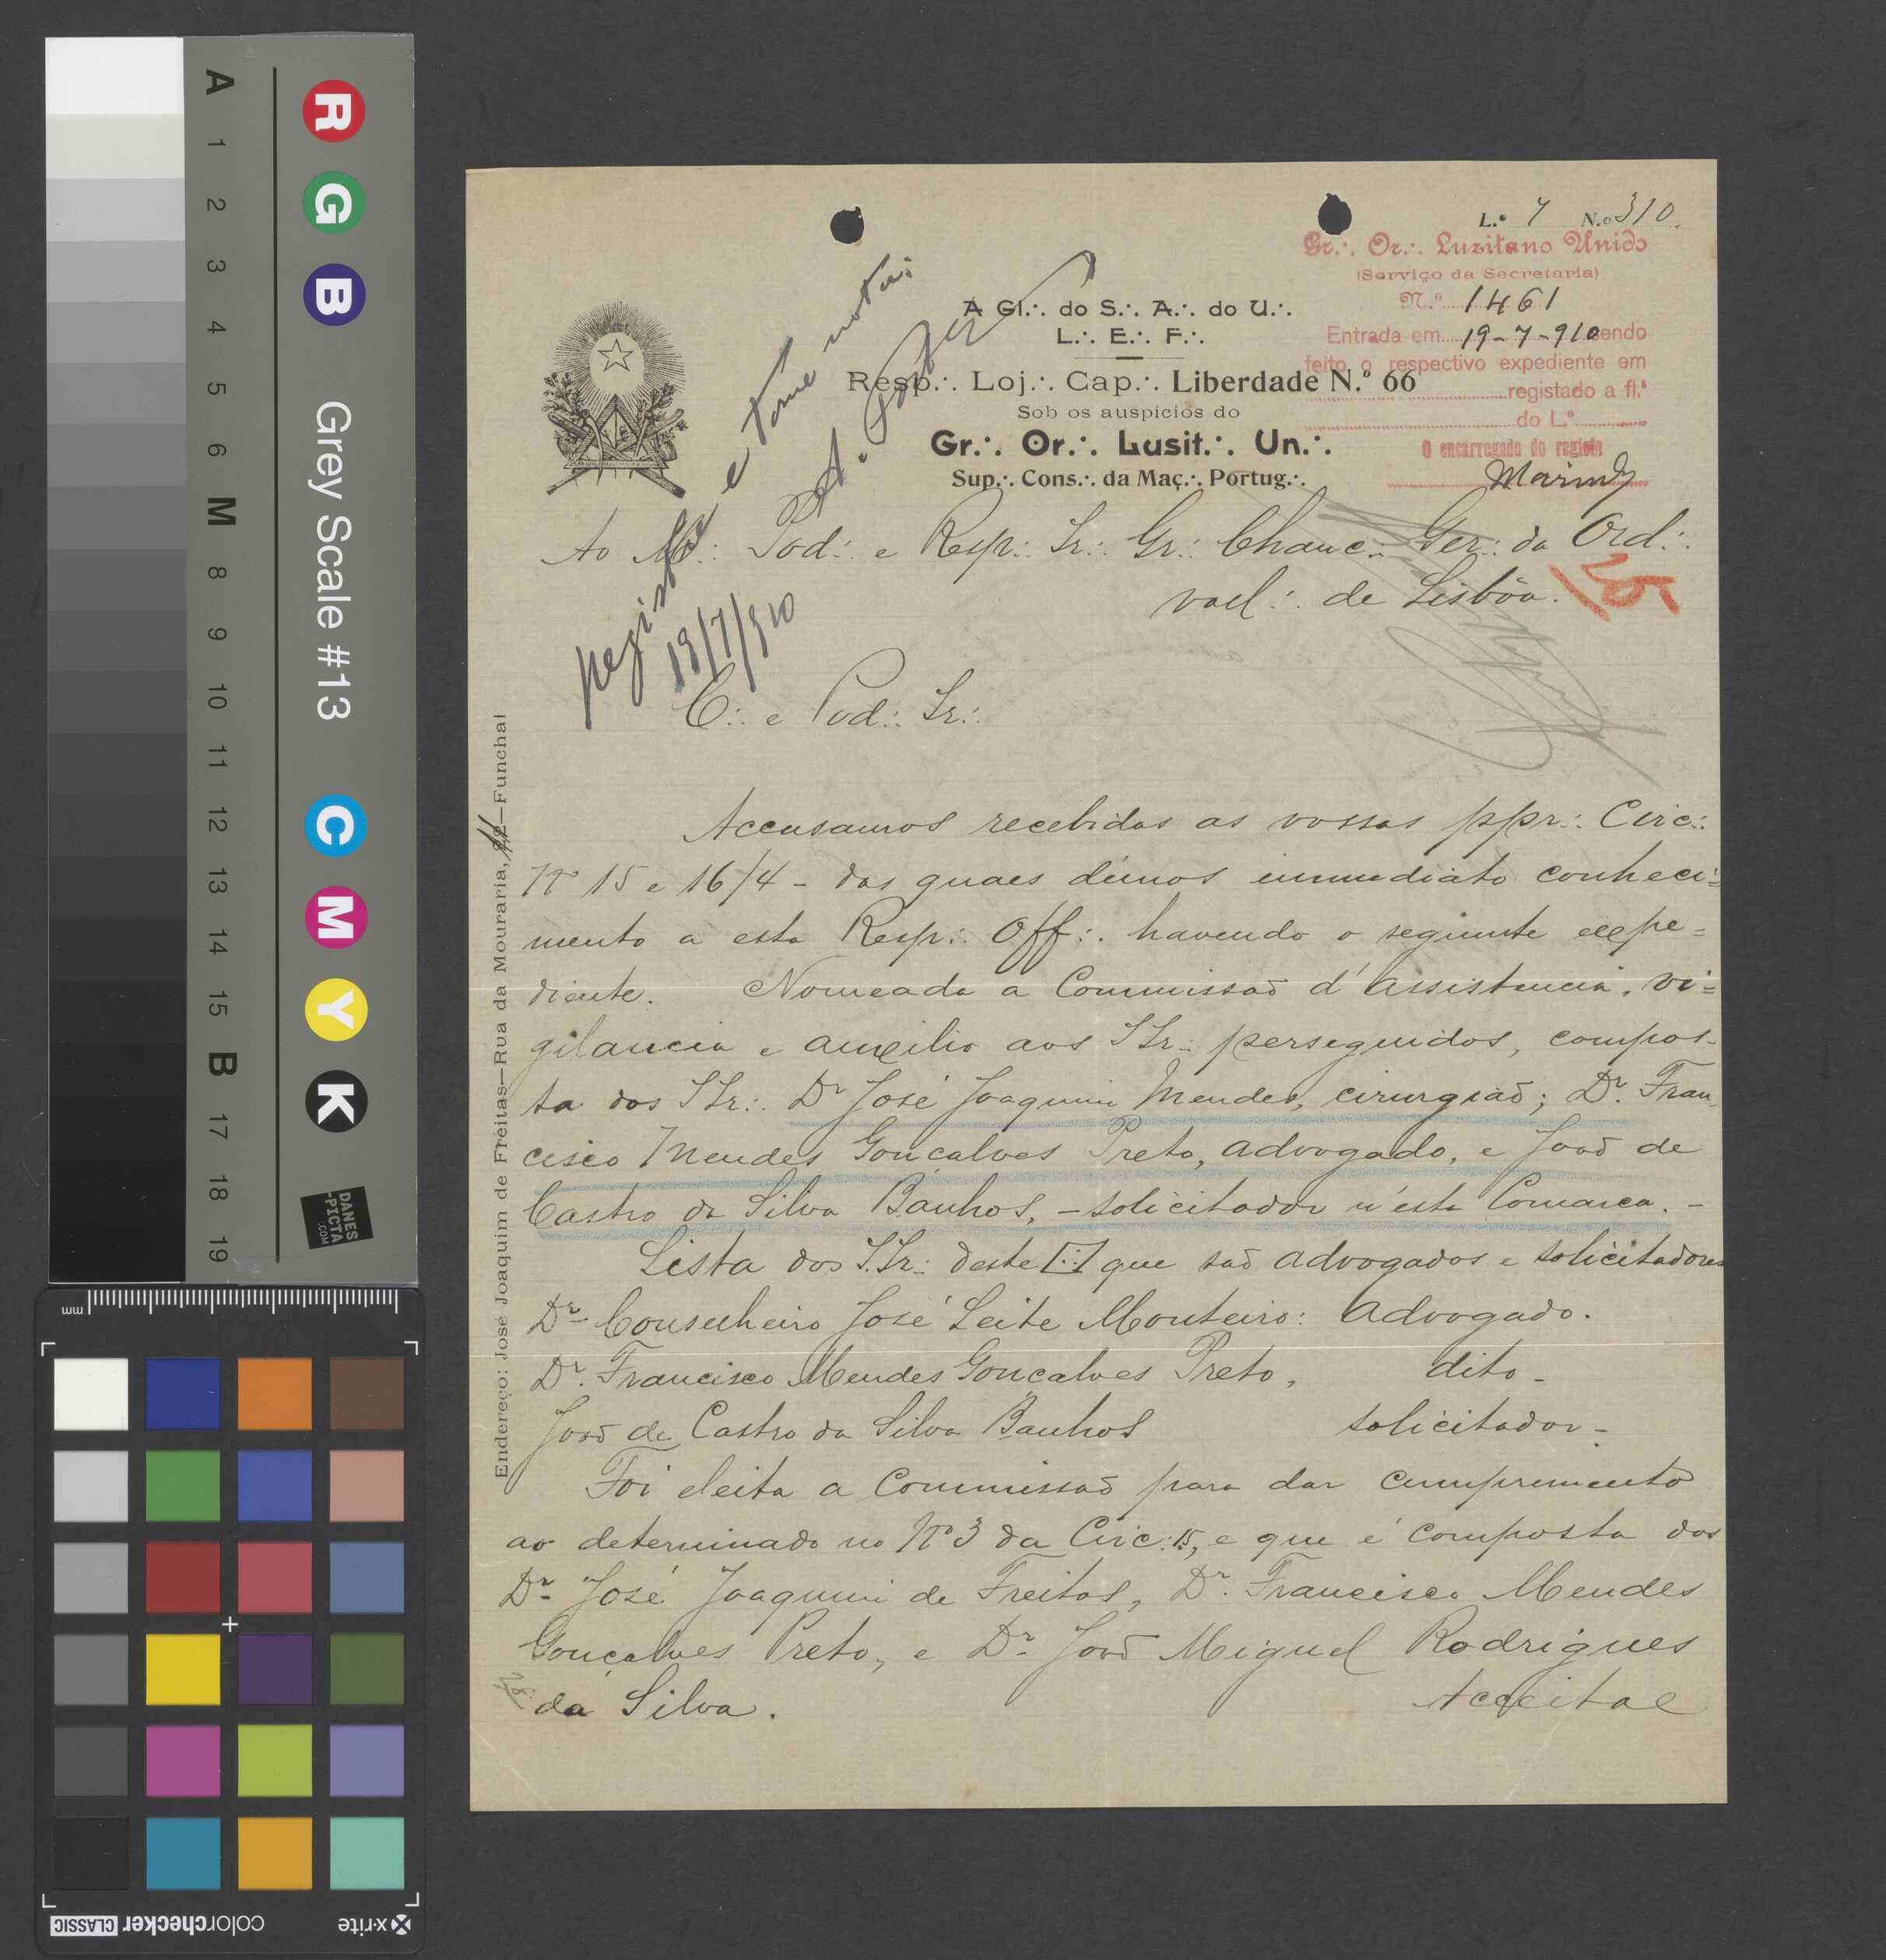 L.º 7 N.º 310.
Gr∴ Or∴ Luzitano Unido
(Serviço da Secretaria)
N.º 1461
Entrada em 19-7-910 sendo
feito o respectivo expediente em
registado a fl.ª
do L.º
O encarregado do registo
A Gl∴ do S∴ A∴ do U∴
L∴ E∴ F∴
Resp∴ Loj∴ Cap∴ Liberdade N.º 66
Sob os auspicios do
Gr∴ Or∴ Lusit∴ Un∴
Sup∴ Cons∴ da Maç∴ Portug∴
registe e tome nota:
19/7/910
Ao M∴ Pod∴ e Resp∴ Ir∴ Gr∴ Chanc∴ Ger∴ da Ord∴
vael∴ de Lisbôa.
C∴ e Pod∴ Ir∴
Accusamos recebidas as vossas ppr∴ Circ∴
Nº 15 e 16/4 - das quaes démos immediato conheci=
mento a esta Resp∴ Off∴ havendo o seguinte expe=
diente. Nomeada a Commissaõ d'assistencia, vi=
gilancia e auxilio aos IIr∴ perseguidos, compos-
ta dos IIr∴ Dr José Joaquim Mendes, cirurgiaõ; Dr. Fran-
cisco Mendes Gonçalves Preto, advogado, e Joaõ de
Castro da Silva Banhos, - solicitador n'esta Comarca. -
Lista dos I.Ir∴ deste [∴] que saõ advogados e solicitadores
Dr Conselheiro José Leite Monteiro: Advogado.
Dr. Francisco Mendes Gonçalves Preto, dito -
Joaõ de Castro da Silva Banhos solicitador -
Foi eleita a Commissaõ para dar cumprimento
ao determinado no Nº 3 da Circ∴ 15, e que é composta dos
Dr José Joaquim de Freitas, Dr. Francisco Mendes
Gonçalves Preto, e Dr Joaõ Miguel Rodrigues
da Silva. Acceitae
Endereço: José Joaquim de Freitas—Rua da Mouraria, 11—Funchal
A 1 2 3 4 5 6 M 8 9 10 11 12 13 14 15 B 17 18 19
R G B Grey Scale #13 C M Y K
DANES
-PICTA
.COM
mm
x-rite colorchecker CLASSIC